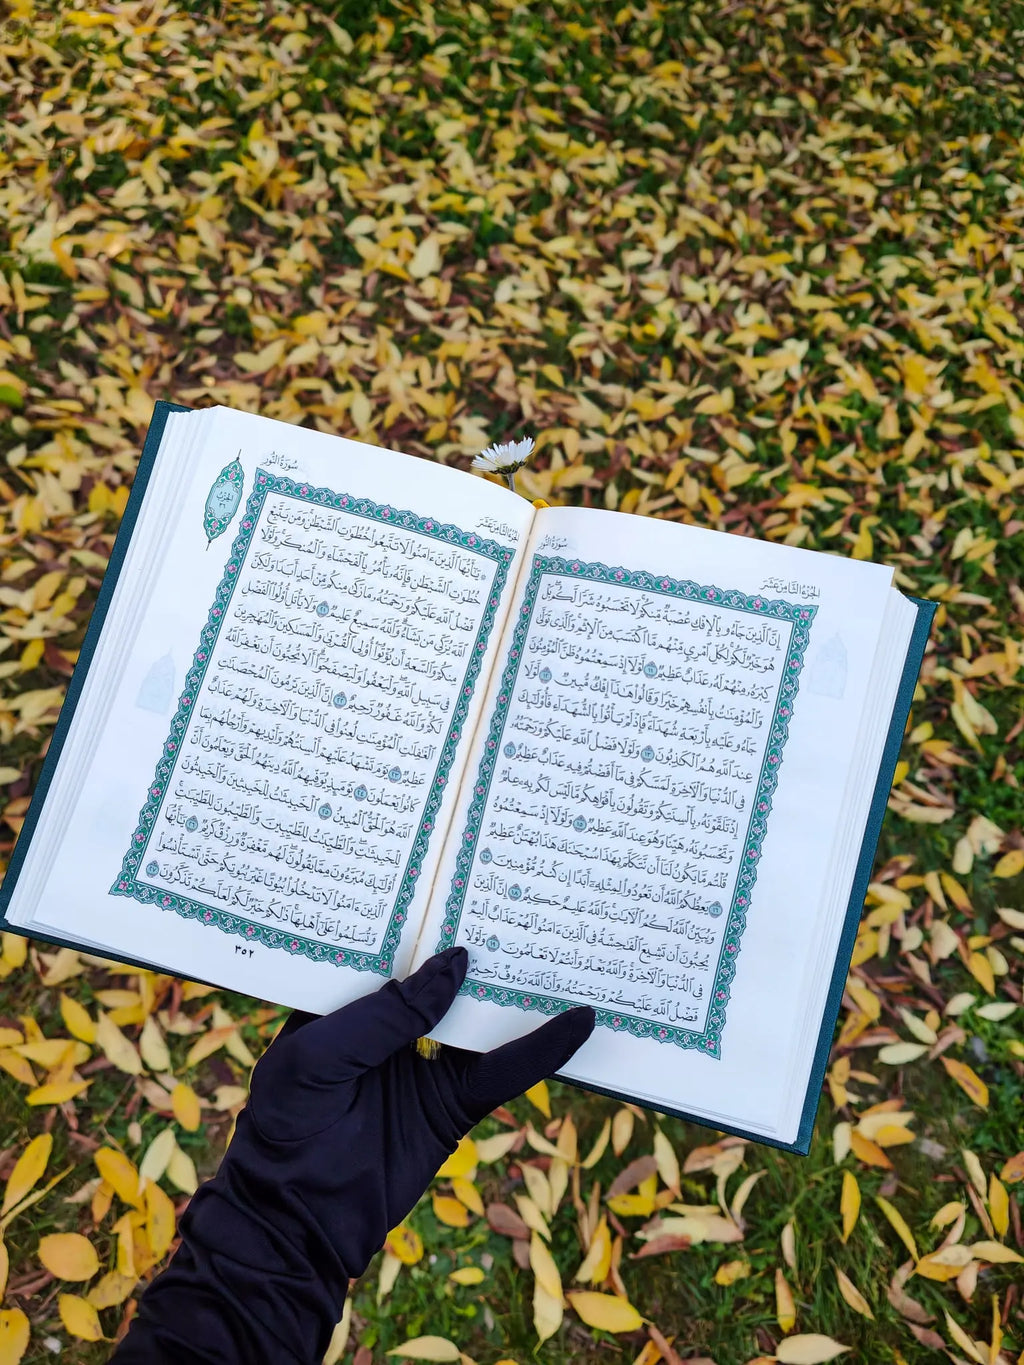 الجُزْءُ الثَّامِنَ عَشَرَ
سُورَةُ النُّورِ
إِنَّ ٱلَّذِينَ جَآءُو بِٱلْإِفْكِ عُصْبَةٌ مِّنكُمْ لَا تَحْسَبُوهُ شَرًّا لَّكُم بَلْ
هُوَ خَيْرٌ لَّكُمْ لِكُلِّ ٱمْرِئٍ مِّنْهُم مَّا ٱكْتَسَبَ مِنَ ٱلْإِثْمِ وَٱلَّذِى تَوَلَّىٰ
كِبْرَهُۥ مِنْهُمْ لَهُۥ عَذَابٌ عَظِيمٌ ١١ لَّوْلَآ إِذْ سَمِعْتُمُوهُ ظَنَّ ٱلْمُؤْمِنُونَ
وَٱلْمُؤْمِنَٰتُ بِأَنفُسِهِمْ خَيْرًا وَقَالُوا۟ هَٰذَآ إِفْكٌ مُّبِينٌ ١٢ لَّوْلَا
جَآءُو عَلَيْهِ بِأَرْبَعَةِ شُهَدَآءَ فَإِذْ لَمْ يَأْتُوا۟ بِٱلشُّهَدَآءِ فَأُو۟لَٰٓئِكَ
عِندَ ٱللَّهِ هُمُ ٱلْكَٰذِبُونَ ١٣ وَلَوْلَا فَضْلُ ٱللَّهِ عَلَيْكُمْ وَرَحْمَتُهُۥ
فِى ٱلدُّنْيَا وَٱلْءَاخِرَةِ لَمَسَّكُمْ فِى مَآ أَفَضْتُمْ فِيهِ عَذَابٌ عَظِيمٌ ١٤
إِذْ تَلَقَّوْنَهُۥ بِأَلْسِنَتِكُمْ وَتَقُولُونَ بِأَفْوَاهِكُم مَّا لَيْسَ لَكُم بِهِۦ عِلْمٌ
وَتَحْسَبُونَهُۥ هَيِّنًا وَهُوَ عِندَ ٱللَّهِ عَظِيمٌ ١٥ وَلَوْلَآ إِذْ سَمِعْتُمُوهُ
قُلْتُم مَّا يَكُونُ لَنَآ أَن نَّتَكَلَّمَ بِهَٰذَا سُبْحَٰنَكَ هَٰذَا بُهْتَٰنٌ عَظِيمٌ
١٦ يَعِظُكُمُ ٱللَّهُ أَن تَعُودُوا۟ لِمِثْلِهِۦٓ أَبَدًا إِن كُنتُم مُّؤْمِنِينَ ١٧
وَيُبَيِّنُ ٱللَّهُ لَكُمُ ٱلْءَايَٰتِ وَٱللَّهُ عَلِيمٌ حَكِيمٌ ١٨ إِنَّ ٱلَّذِينَ
يُحِبُّونَ أَن تَشِيعَ ٱلْفَٰحِشَةُ فِى ٱلَّذِينَ ءَامَنُوا۟ لَهُمْ عَذَابٌ أَلِيمٌ
فِى ٱلدُّنْيَا وَٱلْءَاخِرَةِ وَٱللَّهُ يَعْلَمُ وَأَنتُمْ لَا تَعْلَمُونَ ١٩ وَلَوْلَا
فَضْلُ ٱللَّهِ عَلَيْكُمْ وَرَحْمَتُهُۥ وَأَنَّ ٱللَّهَ رَءُوفٌ رَّحِيمٌ
الجُزْءُ الثَّامِنَ عَشَرَ
سُورَةُ النُّورِ
الحِزْب ٣٦
۞ يَٰٓأَيُّهَا ٱلَّذِينَ ءَامَنُوا۟ لَا تَتَّبِعُوا۟ خُطُوَٰتِ ٱلشَّيْطَٰنِ وَمَن يَتَّبِعْ
خُطُوَٰتِ ٱلشَّيْطَٰنِ فَإِنَّهُۥ يَأْمُرُ بِٱلْفَحْشَآءِ وَٱلْمُنكَرِ وَلَوْلَا
فَضْلُ ٱللَّهِ عَلَيْكُمْ وَرَحْمَتُهُۥ مَا زَكَىٰ مِنكُم مِّنْ أَحَدٍ أَبَدًا وَلَٰكِنَّ
ٱللَّهَ يُزَكِّى مَن يَشَآءُ وَٱللَّهُ سَمِيعٌ عَلِيمٌ ٢١ وَلَا يَأْتَلِ أُو۟لُوا۟ ٱلْفَضْلِ
مِنكُمْ وَٱلسَّعَةِ أَن يُؤْتُوٓا۟ أُو۟لِى ٱلْقُرْبَىٰ وَٱلْمَسَٰكِينَ وَٱلْمُهَٰجِرِينَ
فِى سَبِيلِ ٱللَّهِ وَلْيَعْفُوا۟ وَلْيَصْفَحُوٓا۟ أَلَا تُحِبُّونَ أَن يَغْفِرَ ٱللَّهُ
لَكُمْ وَٱللَّهُ غَفُورٌ رَّحِيمٌ ٢٢ إِنَّ ٱلَّذِينَ يَرْمُونَ ٱلْمُحْصَنَٰتِ
ٱلْغَٰفِلَٰتِ ٱلْمُؤْمِنَٰتِ لُعِنُوا۟ فِى ٱلدُّنْيَا وَٱلْءَاخِرَةِ وَلَهُمْ عَذَابٌ
عَظِيمٌ ٢٣ يَوْمَ تَشْهَدُ عَلَيْهِمْ أَلْسِنَتُهُمْ وَأَيْدِيهِمْ وَأَرْجُلُهُم بِمَا
كَانُوا۟ يَعْمَلُونَ ٢٤ يَوْمَئِذٍ يُوَفِّيهِمُ ٱللَّهُ دِينَهُمُ ٱلْحَقَّ وَيَعْلَمُونَ أَنَّ
ٱللَّهَ هُوَ ٱلْحَقُّ ٱلْمُبِينُ ٢٥ ٱلْخَبِيثَٰتُ لِلْخَبِيثِينَ وَٱلْخَبِيثُونَ
لِلْخَبِيثَٰتِ وَٱلطَّيِّبَٰتُ لِلطَّيِّبِينَ وَٱلطَّيِّبُونَ لِلطَّيِّبَٰتِ
أُو۟لَٰٓئِكَ مُبَرَّءُونَ مِمَّا يَقُولُونَ لَهُم مَّغْفِرَةٌ وَرِزْقٌ كَرِيمٌ ٢٦ يَٰٓأَيُّهَا
ٱلَّذِينَ ءَامَنُوا۟ لَا تَدْخُلُوا۟ بُيُوتًا غَيْرَ بُيُوتِكُمْ حَتَّىٰ تَسْتَأْنِسُوا۟
وَتُسَلِّمُوا۟ عَلَىٰٓ أَهْلِهَا ذَٰلِكُمْ خَيْرٌ لَّكُمْ لَعَلَّكُمْ تَذَكَّرُونَ ٢٧
٣٥٢